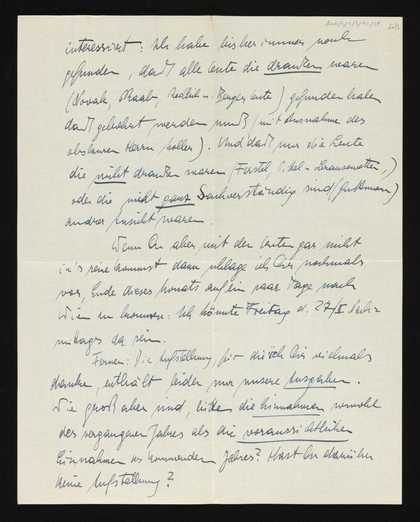 interessiert. Ich habe bisher immer noch
gefunden, dass alle Leute die draußen waren
(Novak, Raab, Redlich - Leute) gefunden haben
dass gebohrt werden muß, mit Ausnahme des
obskuren Herrn Holler). Und daß nur die Leute
die nicht draußen waren (Ferstel,
oder die nicht ganz Sachverständig sind
andrer Ansicht waren
Wenn Du aber mit den Leuten gar nicht
in's reine kommst dann schlage ich Dir nochmals
vor, Ende dieses Monats auf ein paar Tage nach
Wien zu kommen. Ich könnte Freitag d. 27/X
mittags da sein.
Ferner: Die Aufstellung, für die ich Dir vielmals
danke, enthält leider nur unsere Ausgaben.
Wie groß aber sind, bitte die Einnahmen sowohl
des vergangenen Jahres als die voraussichtlichen
Einnahmen des kommenden Jahres? Hast Du darüber
keine Aufstellung?